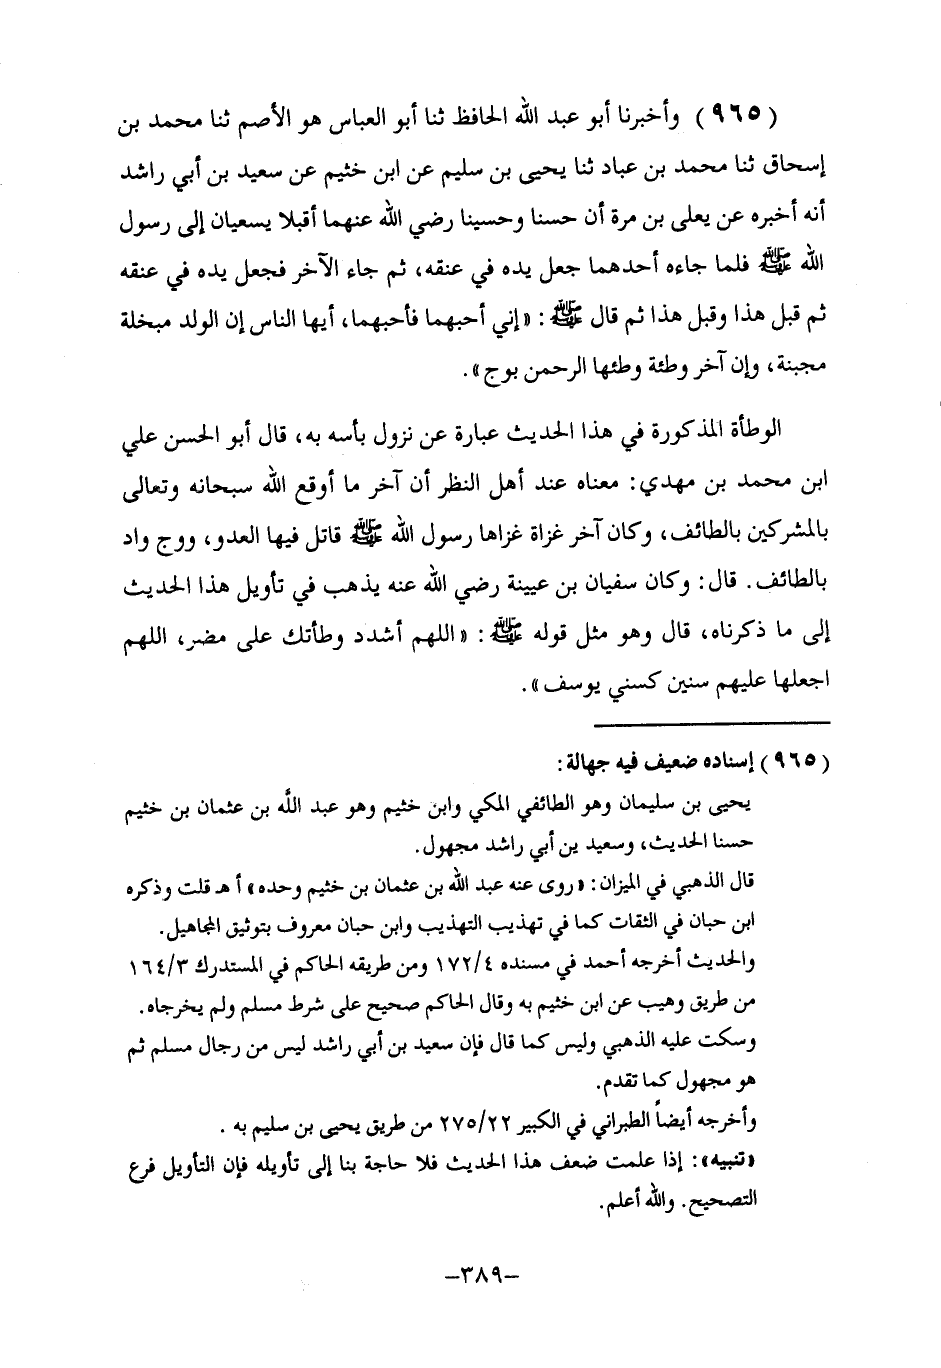 (٩٦٥) وأخبرنا أبو عبد الله الحافظ ثنا أبو العباس هو الأصم ثنا محمد بن
إسحاق ثنا محمد بن عباد ثنا يحيى بن سليم عن ابن خثيم عن سعيد بن أبي راشد
أنه أخبره عن يعلى بن مرة أن حسنا وحسينا رضي الله عنهما أقبلا يسعيان إلى رسول
الله ﷺ فلما جاءه أحدهما جعل يده في عنقه، ثم جاء الآخر فجعل يده في عنقه
ثم قبل هذا وقبل هذا ثم قال ﷺ: «إني أحبهما فأحبهما، أيها الناس إن الولد مبخلة
مجبنة، وإن آخر وطئة وطئها الرحمن بوج».
الوطأة المذكورة في هذا الحديث عبارة عن نزول بأسه به، قال أبو الحسن علي
ابن محمد بن مهدي: معناه عند أهل النظر أن آخر ما أوقع الله سبحانه وتعالى
بالمشركين بالطائف، وكان آخر غزاة غزاها رسول الله ﷺ قاتل فيها العدو، ووج واد
بالطائف. قال: وكان سفيان بن عيينة رضي الله عنه يذهب في تأويل هذا الحديث
إلى ما ذكرناه، قال وهو مثل قوله ﷺ: «اللهم أشدد وطأتك على مضر، اللهم
اجعلها عليهم سنين كسني يوسف».
(٩٦٥) إسناده ضعيف فيه جهالة:
يحيى بن سليمان وهو الطائفي المكي وابن خثيم وهو عبد الله بن عثمان بن خثيم
حسنا الحديث، وسعيد بن أبي راشد مجهول.
قال الذهبي في الميزان: «روى عنه عبد الله بن عثمان بن خثيم وحده» أ هـ قلت وذكره
ابن حبان في الثقات كما في تهذيب التهذيب وابن حبان معروف بتوثيق المجاهيل.
والحديث أخرجه أحمد في مسنده ١٧٢/٤ ومن طريقه الحاكم في المستدرك ١٦٤/٣
من طريق وهيب عن ابن خثيم به وقال الحاكم صحيح على شرط مسلم ولم يخرجاه.
وسكت عليه الذهبي وليس كما قال فإن سعيد بن أبي راشد ليس من رجال مسلم ثم
هو مجهول كما تقدم.
وأخرجه أيضاً الطبراني في الكبير ٢٧٥/٢٢ من طريق يحيى بن سليم به .
«تنبيه»: إذا علمت ضعف هذا الحديث فلا حاجة بنا إلى تأويله فإن التأويل فرع
التصحيح. والله أعلم.
-٣٨٩-